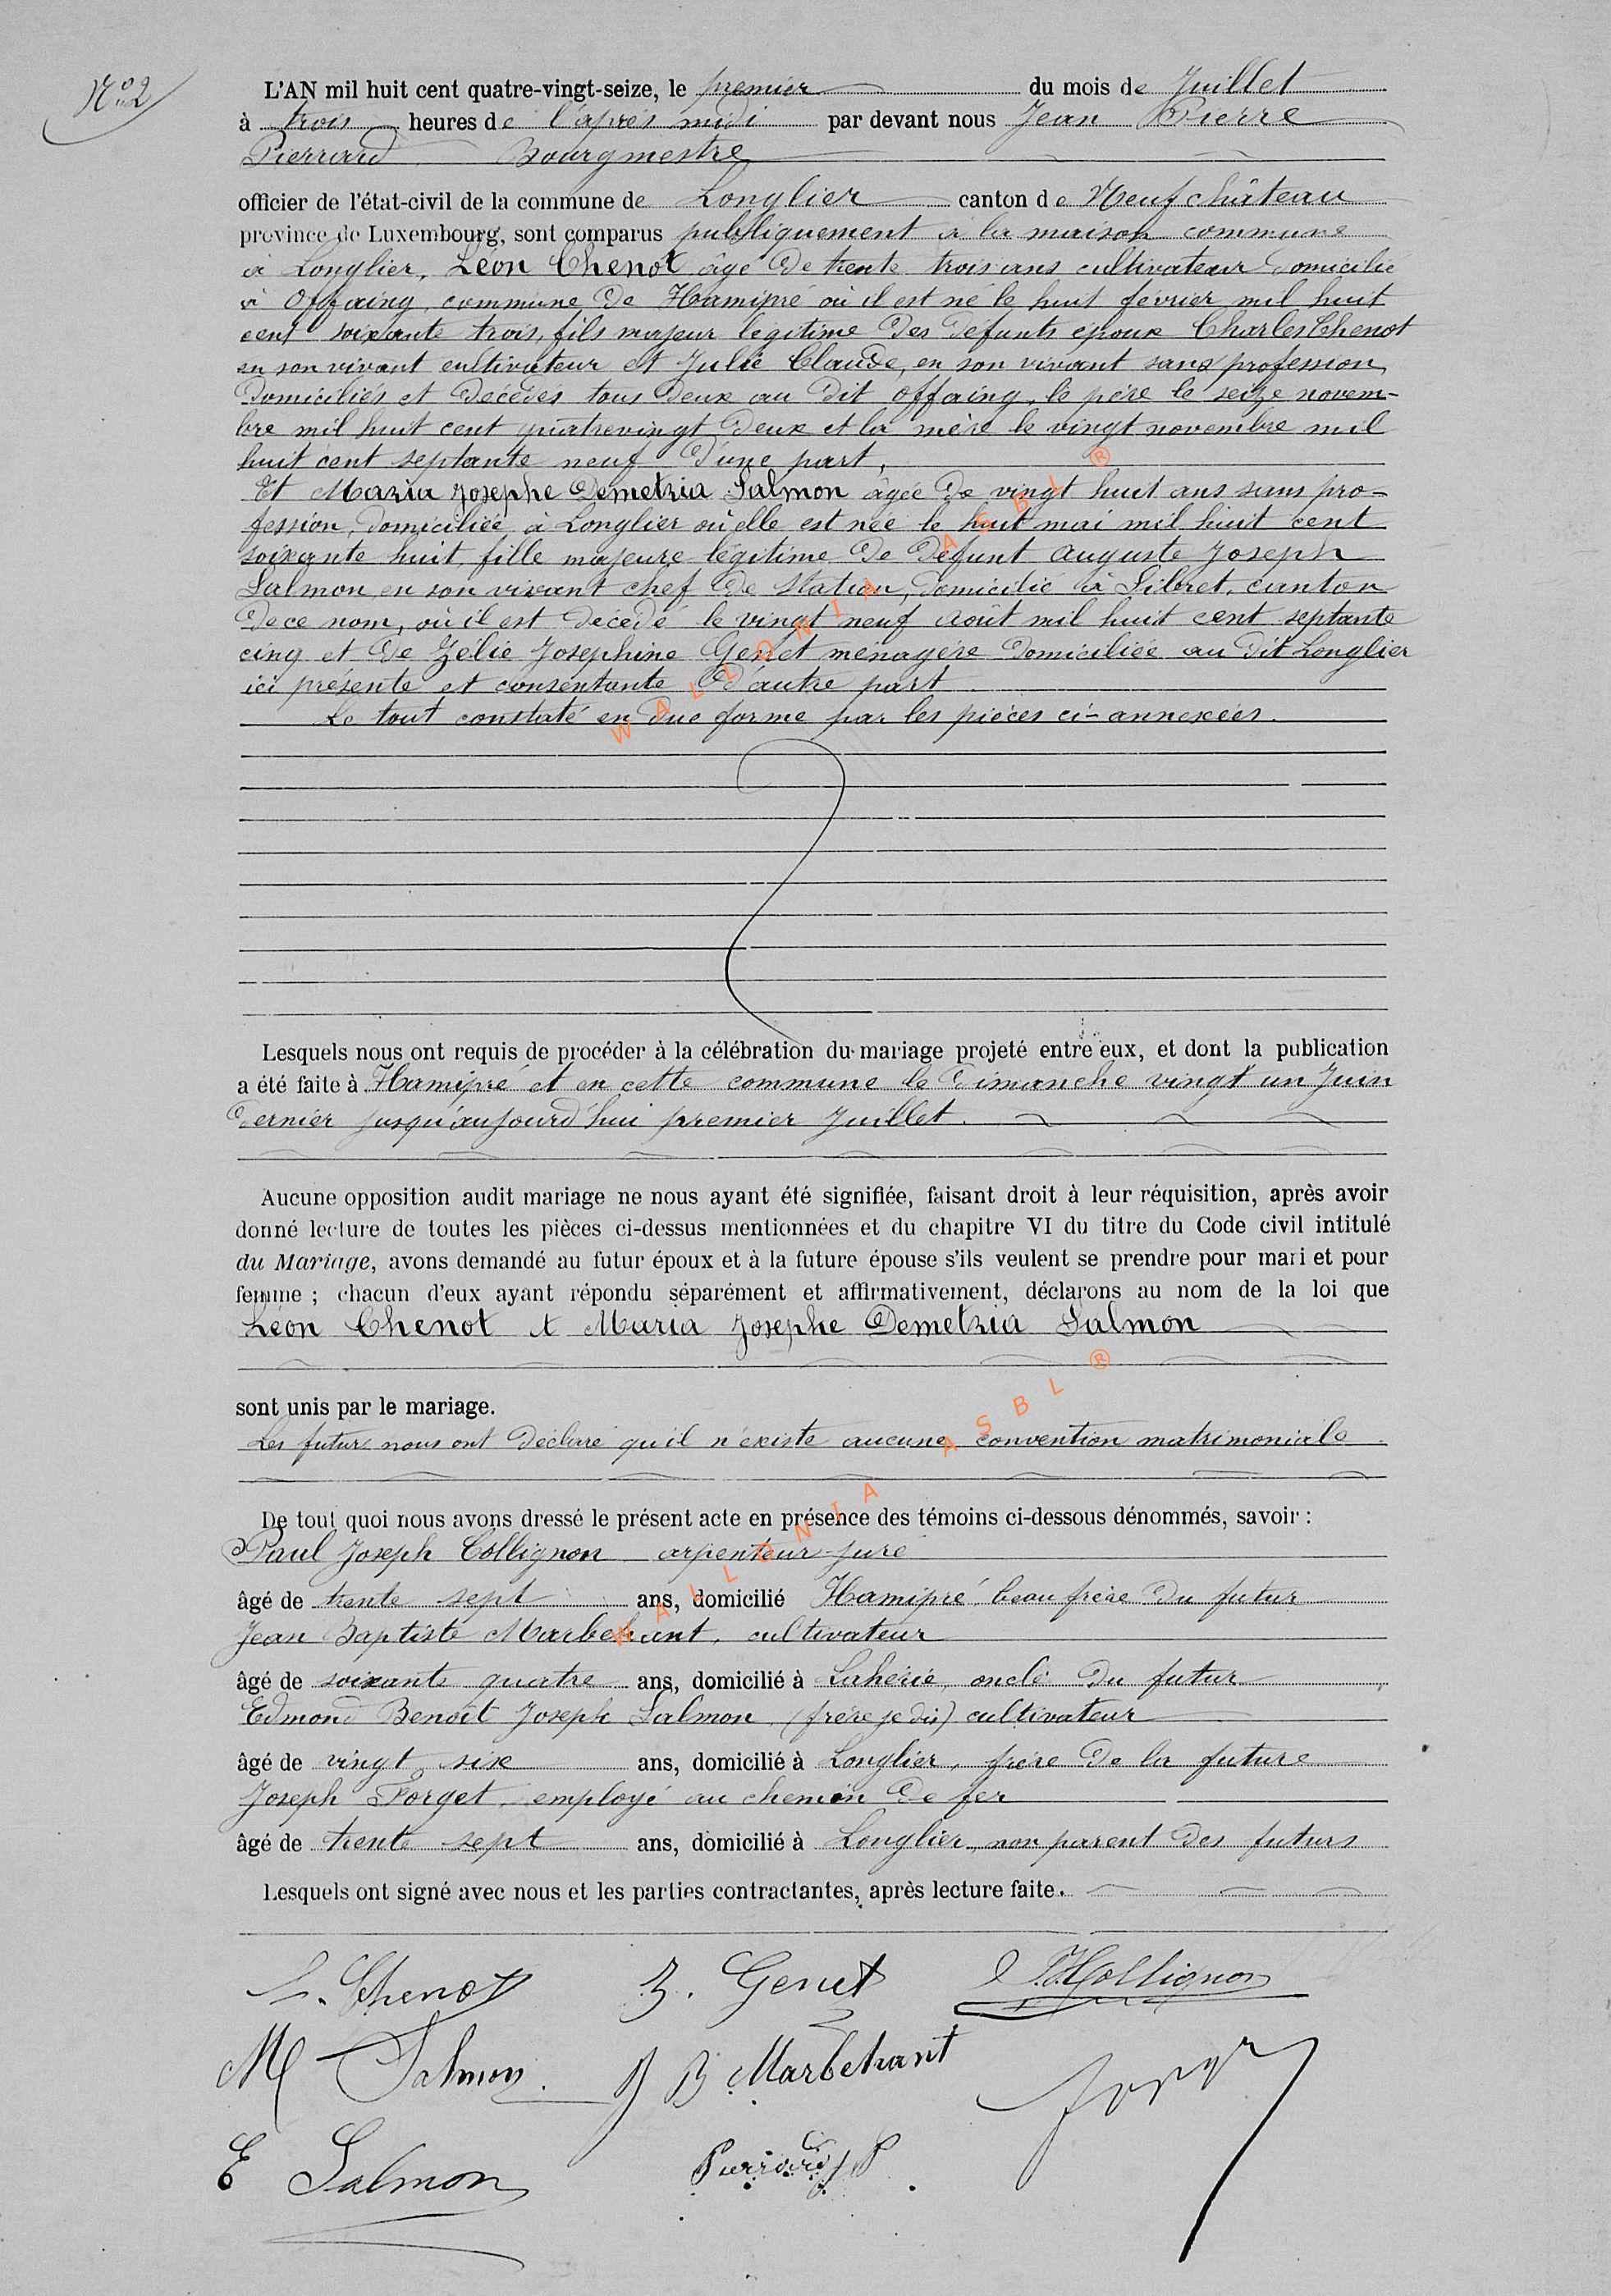 N° 2
L'AN mil huit cent quatre-vingt-seize, le premier du mois de Juillet
à trois heures de l'après midi par devant nous Jean Pierre
Pierrard Bourgmestre
officier de l'état-civil de la commune de Longlier canton de Neufchâteau
province de Luxembourg, sont comparus publiquement à la maison commune
à Longlier, Léon Chenot âgé de trente trois ans cultivateur domicilié
à Offaing, commune de Hamipré où il est né le huit février mil huit
cent soixante trois, fils majeur légitime des défunts époux Charles Chenot
en son vivant cultivateur et Julie Claude, en son vivant sans profession,
domiciliés et décédés tous deux au dit Offaing, le père le seize novem-
bre mil huit cent quatrevingt deux et la mère le vingt novembre mil
huit cent septante neuf d'une part,
Et Maria Josephe Demetria Salmon âgée de vingt huit ans sans pro-
fession, domiciliée à Longlier où elle est née le huit mai mil huit cent
soixante huit, fille majeure légitime de défunt Auguste Joseph
Salmon en son vivant chef de station, domicilié à Sibret, canton
de ce nom, où il est décédé le vingt neuf août mil huit cent septante
cinq et de Zélie Josephine Genet ménagère domiciliée au dit Longlier
ici présente et consentante d'autre part
Le tout constaté en due forme par les pièces ci-annexées.
Lesquels nous ont requis de procéder à la célébration du mariage projeté entre eux, et dont la publication
a été faite à Hamipré et en cette commune le dimanche vingt un Juin
dernier jusqu'aujourd'hui premier Juillet.
Aucune opposition audit mariage ne nous ayant été signifiée, faisant droit à leur réquisition, après avoir
donné lecture de toutes les pièces ci-dessus mentionnées et du chapitre VI du titre du Code civil intitulé
du Mariage, avons demandé au futur époux et à la future épouse s'ils veulent se prendre pour mari et pour
femme ; chacun d'eux ayant répondu séparément et affirmativement, déclarons au nom de la loi que
Léon Chenot et Maria Josephe Demetria Salmon
sont unis par le mariage.
Les futurs nous ont déclaré qu'il n'existe aucune convention matrimoniale
De tout quoi nous avons dressé le présent acte en présence des témoins ci-dessous dénommés, savoir :
Paul Joseph Collignon arpenteur juré
âgé de trente sept ans, domicilié Hamipré beau frère du futur
Jean Baptiste Marbehant, cultivateur
âgé de soixante quatre ans, domicilié à Lahérie, oncle du futur
Edmond Benoît Joseph Salmon (frère je dis) cultivateur
âgé de vingt six ans, domicilié à Longlier, frère de la future
Joseph Forget, employé au chemin de fer
âgé de trente sept ans, domicilié à Longlier, non parent des futurs
Lesquels ont signé avec nous et les parties contractantes, après lecture faite.
L. Chenot Z. Genet Collignon
M Salmon. J B Marbehant Forget
E Salmon Pierrard J P
WALLONIA ASBL ®
WALLONIA ASBL ®